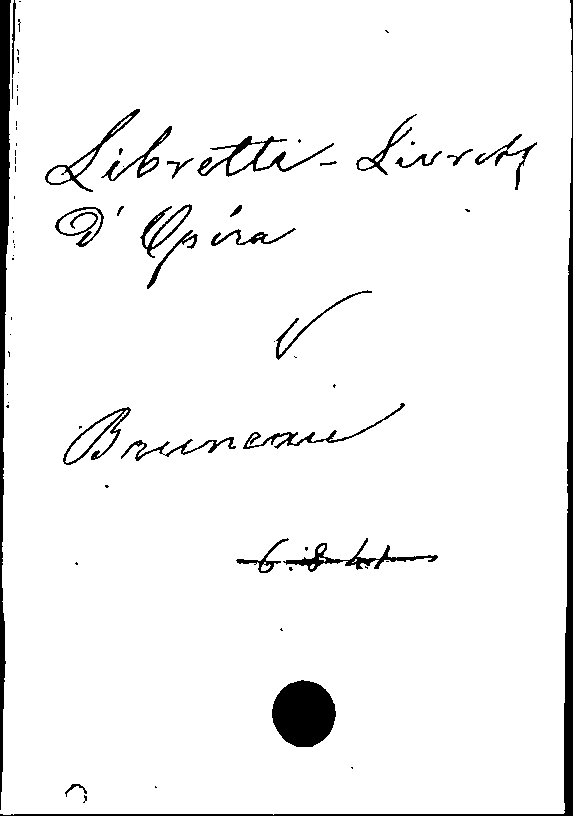 Libretti - Livrets
D'Opéra
V
Bruneau
6.8.41